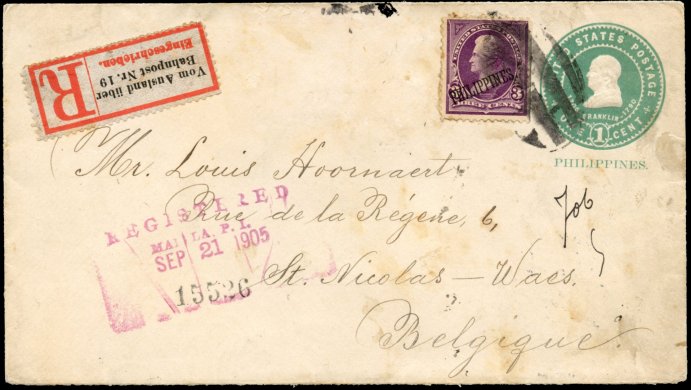 Vom Ausland über
Bahnpost Nr. 19
Eingeschrieben.
R
PHILIPPINES
3
UNITED STATES POSTAGE
FRANKLIN 1790
ONE 1 CENT
PHILIPPINES.
Mr. Louis Hoornaert
Rue de la Régene, 6,
St. Nicolas - Waes.
Belgique.
REGISTERED
MANILA, P. I.
SEP 21 1905
15526